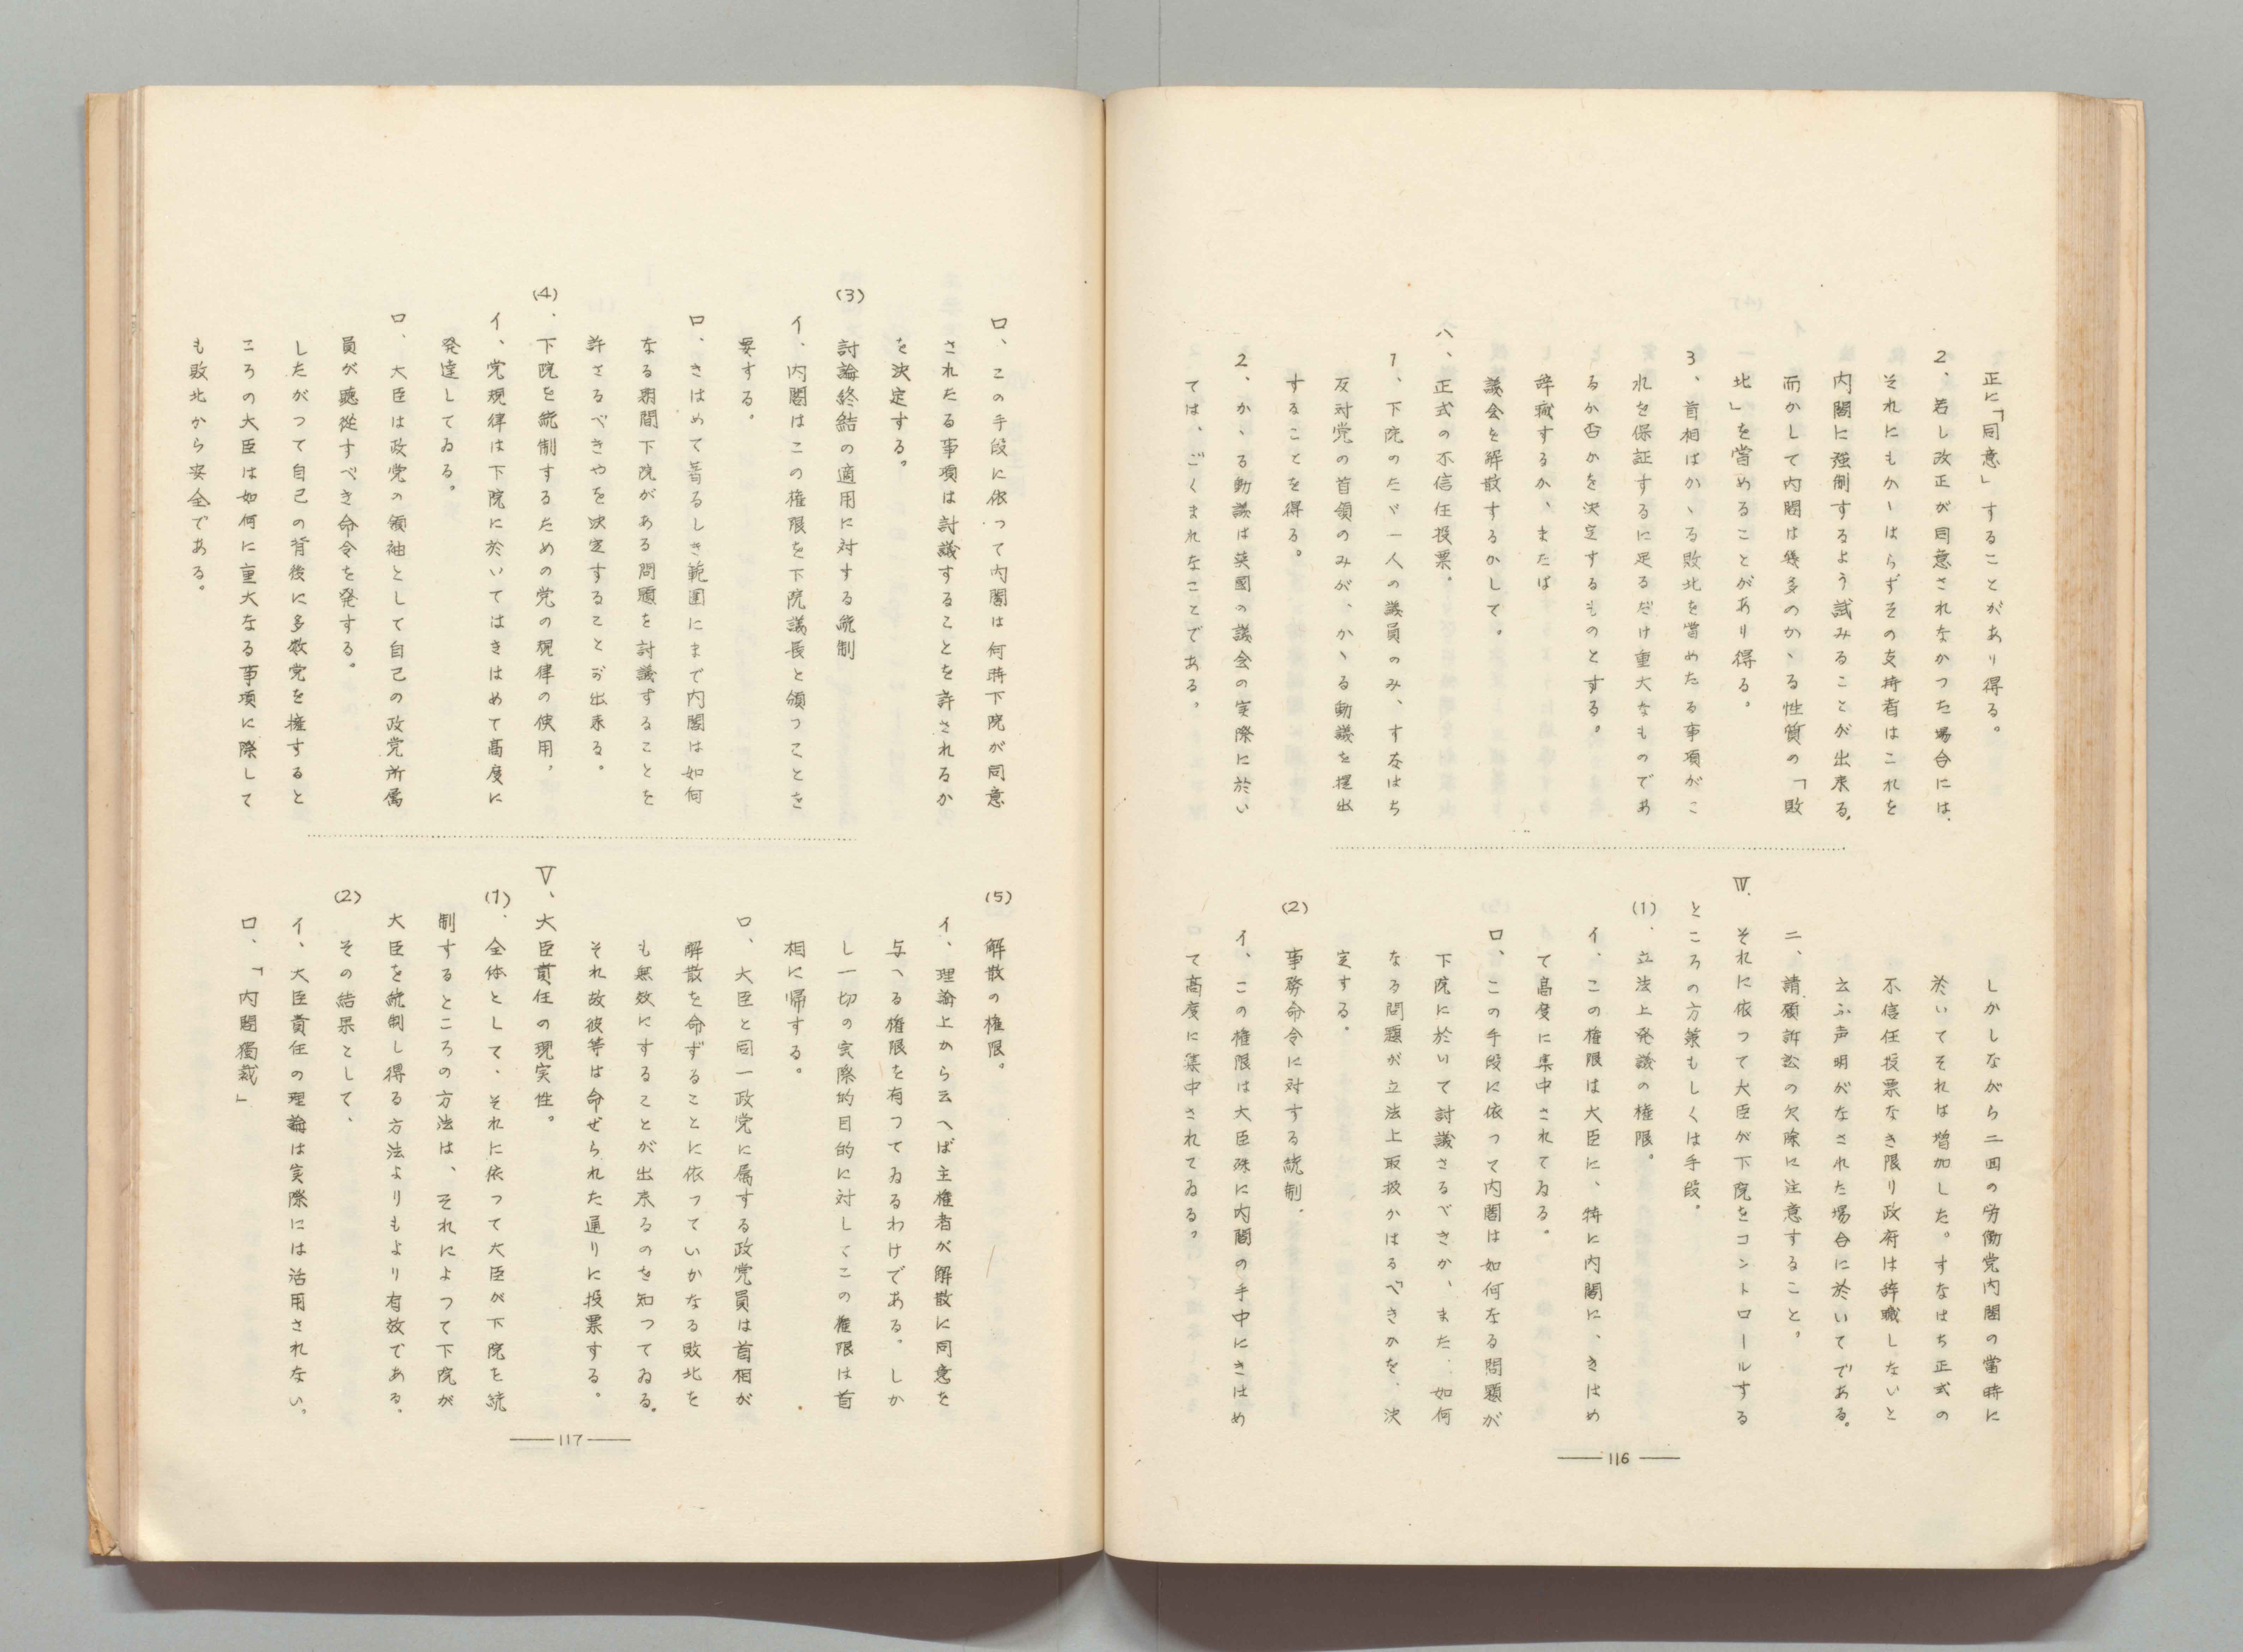 正に「同意」することがあり得る。
2、若し改正が同意されなかつた場合には、
それにもかゝはらずその支持者はこれを
内閣に強制するよう試みることが出来る。
而かして内閣は幾多のかゝる性質の「敗
北」を嘗めることがあり得る。
3、首相はかゝる敗北を嘗めたる事項がこ
れを保証するに足るだけ重大なものであ
るか否かを決定するものとする。
辞職するか、または
議会を解散するかして。
ハ、正式の不信任投票。
1、下院のたゞ一人の議員のみ、すなはち
反対党の首領のみが、かゝる動議を提出
することを得る。
2、かゝる動議は英國の議会の実際に於い
ては、ごくまれなことである。
しかしながら二回の労働党内閣の當時に
於いてそれは増加した。すなはち正式の
不信任投票なき限り政府は辞職しないと
云ふ声明がなされた場合に於いてである。
ニ、請願訴訟の欠除に注意すること。
Ⅳ.それに依つて大臣が下院をコントロールする
ところの方策もしくは手段。
(1).立法上発議の権限。
イ.この権限は大臣に、特に内閣に、きはめ
て高度に集中されてゐる。
ロ、この手段に依つて内閣は如何なる問題が
下院に於いて討議さるべきか、また、如何
なる問題が立法上取扱かはるべきかを、決
定する。
(2)事務命令に対する統制.
イ、この権限は大臣殊に内閣の手中にきはめ
て高度に集中されてゐる。
116
ロ、この手段に依つて内閣は何時下院が同意
されたる事項は討議することを許されるか
を決定する。
(3)討論終結の適用に対する統制
イ、内閣はこの権限を下院議長と頒つことを
要する。
ロ、きはめて著るしき範囲にまで内閣は如何
なる期間下院がある問題を討議することを
許さるべきやを決定することが出来る。
(4).下院を統制するための党の規律の使用,
イ、党規律は下院に於いてはきはめて高度に
発達してゐる。
ロ.大臣は政党の領袖として自己の政党所属
員が聴従すべき命令を発する。
したがつて自己の背後に多数党を擁すると
ころの大臣は如何に重大なる事項に際して
も敗北から安全である。
(5)解散の権限。
イ、理論上から云へば主権者が解散に同意を
与へる権限を有つてゐるわけである。しか
し一切の実際的目的に対してこの権限は首
相に帰する。
ロ、大臣と同一政党に属する政党員は首相が
解散を命ずることに依つていかなる敗北を
も無效にすることが出来るのを知つてゐる。
それ故彼等は命ぜられた通りに投票する。
Ⅴ、大臣責任の現実性。
(1).全体として、それに依つて大臣が下院を統
制するところの方法は、それによつて下院が
大臣を統制し得る方法よりもより有效である.
(2)その結果として、
イ、大臣責任の理論は実際には活用されない。
ロ、「内閣獨裁」
117